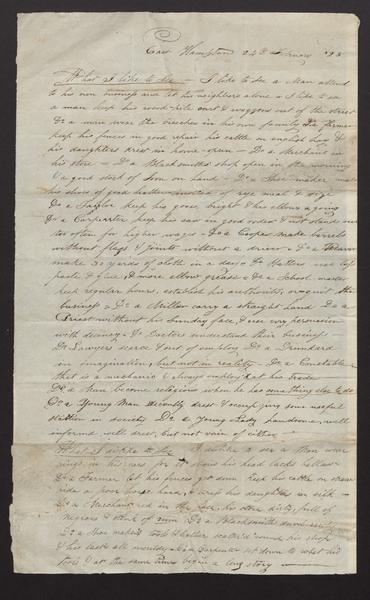 East Hampton 24th February
What I like to See — I like to see a Man attend
to his own business and let his neighbors alone — I like to see
a man keep his wood-pile cart & waggons out of the street
Do a man wear the breeches in his own family Do a farmer
keep his fences in good repair his cattle on english hay &
his daughters drest in home-spun — Do a Merchant
his store — Do a Blacksmiths shop open in the morning
& a good stock of Iron on hand — Do a Shoe-maker make
his shoes of good leather instead of rye meal &
Do a Taylor keep his goose bright & his elbows a going
Do a Carpenter keep his saw in good order & not stand
too often for higher wages — Do a Cooper make barrels
without flags & joints without a driver — Do a Weaver
make 30 yards of cloth in a day — Do Hatters use less
paste & glue, & more elbow grease — Do a School-master
keep regular hours, establish his authority, or quit the
business — Do a Miller carry a straight hand Do a
Priest without his Sunday face, & use very persuasion
with decency — Do Doctors understand their business
Do Lawyers scarce & out of employ Do a Drunkard
in imagination, but not in reality — Do a Constable
that is a mechanic & always employ'd at his trade
Do a Man become religious when he has something else to do
Do a Young Man decently drest & occupying some useful
station in society Do a Young Lady handsome, well
informed well drest, but not vain of either —
What I dislike to See I dislike to see a Man wear
rings in his ears for it shows his head lacks ballast
Do a Farmer let his fences get down keep his cattle on straw
ride a poor horse hard, & keep his daughters in silk —
Do a Merchant red in the face, his store dirty, full of
Negroes & stink of rum Do a Blacksmith
Do a Shoe maker's tools & leather scatter'd round his shop
& his lasts all mouldy — Do a Carpenter set down to whet his
tools & at the same time begin a long story —